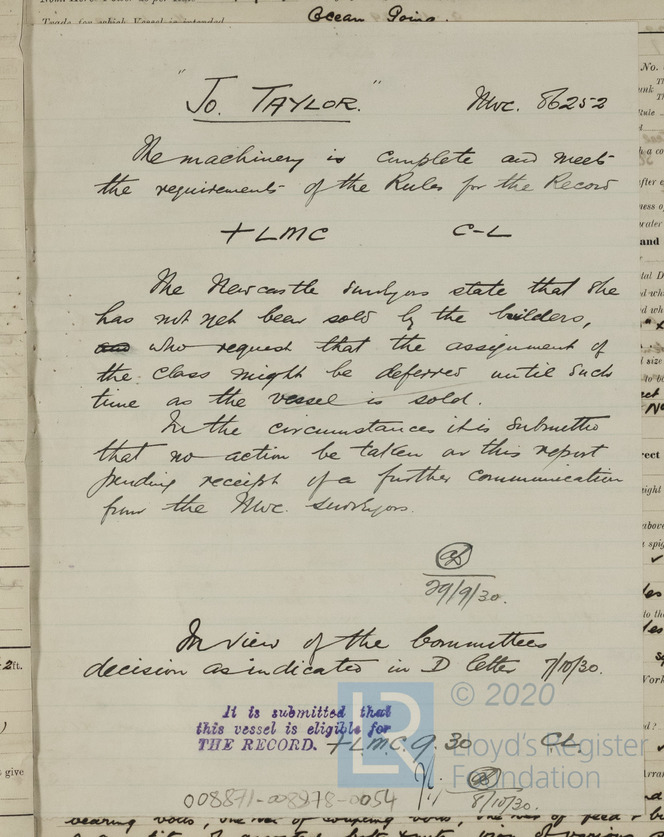 Trade for which Vessel is intended Ocean Going.
"Jo. TAYLOR." Nwc. 86252
The machinery is complete and meets
the requirements of the Rules for the Record
+LMC C-L
The Newcastle Surveyors state that she
has not yet been sold by the builders,
and who request that the assignment of
the class might be deferred until such
time as the vessel is sold.
In the circumstances it is submitted
that no action be taken on this report
pending receipt of a further communication
from the Nwc. surveyors.
29/9/30.
In view of the Committees
decision as indicated in D letter 7/10/30.
It is submitted that
this vessel is eligible for
THE RECORD. +LMC. 9.30 CL
8/10/30.
© 2020
LR
Lloyd's Register
Foundation
008871-008978-0054